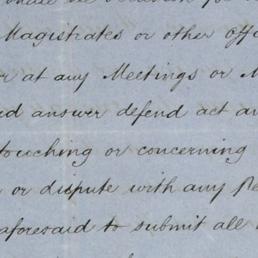 Magistrates or other off
or at any Meetings or M
answer defend act an
touching or concerning
or dispute with any Pe
aforesaid to submit all